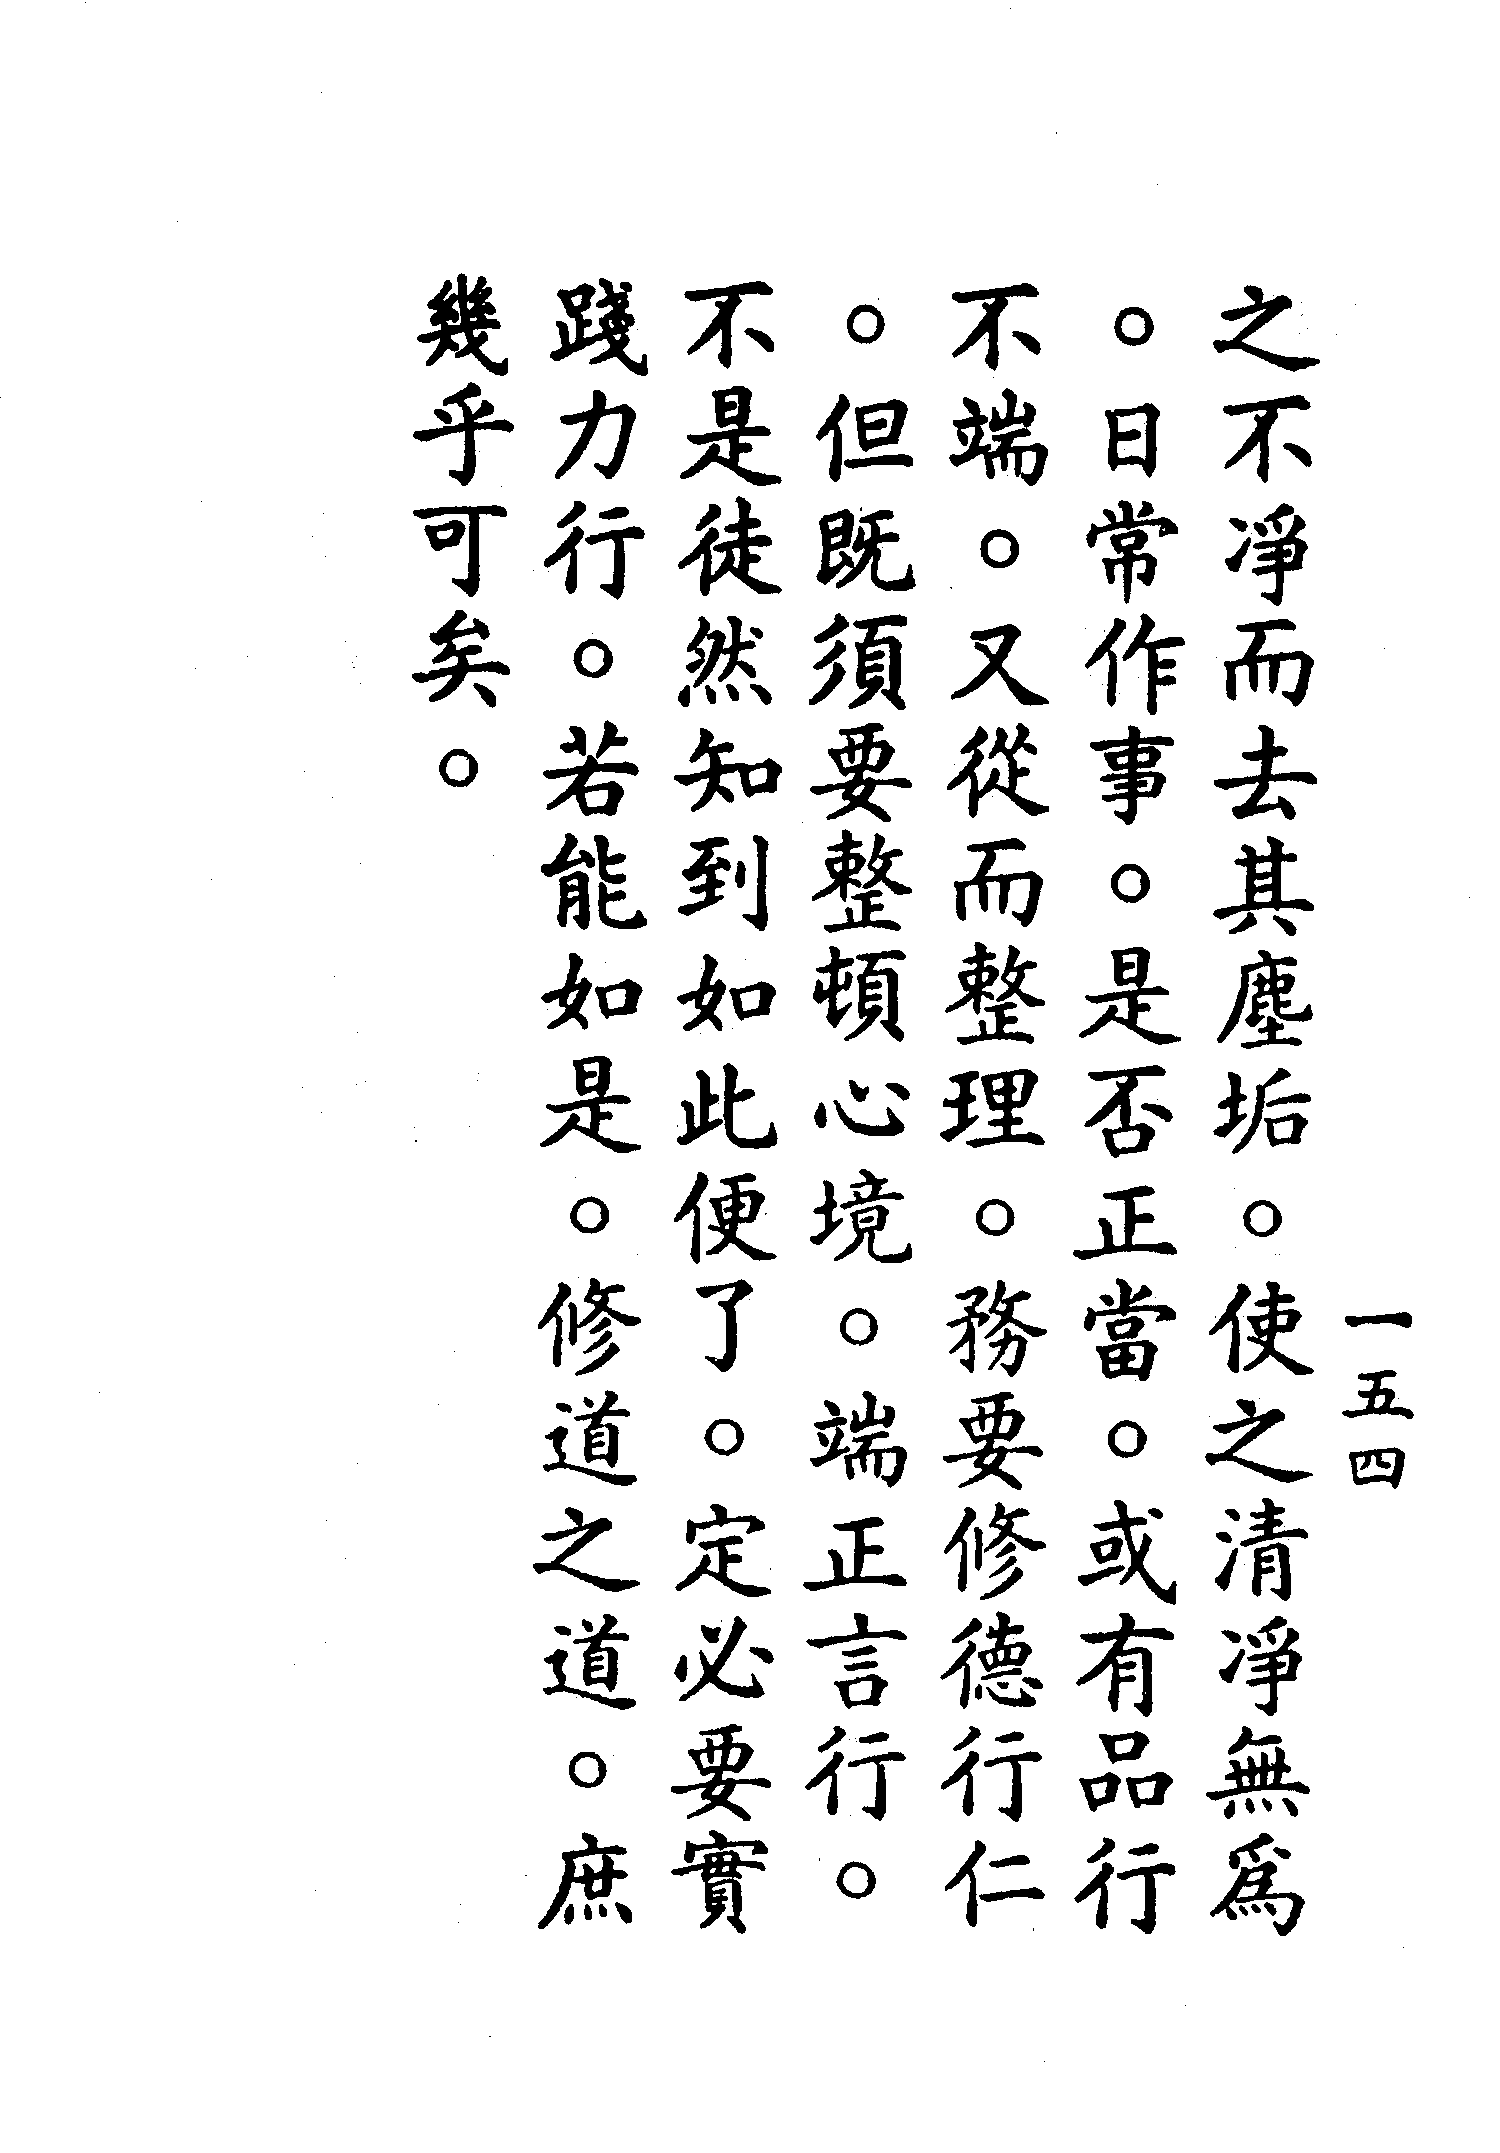 一五四
之不淨而去其塵垢。使之清淨無爲
。日常作事。是否正當。或有品行
不端。又從而整理。務要修德行仁
。但既須要整頓心境。端正言行。
不是徒然知到如此便了。定必要實
踐力行。若能如是。修道之道。庶
幾乎可矣。